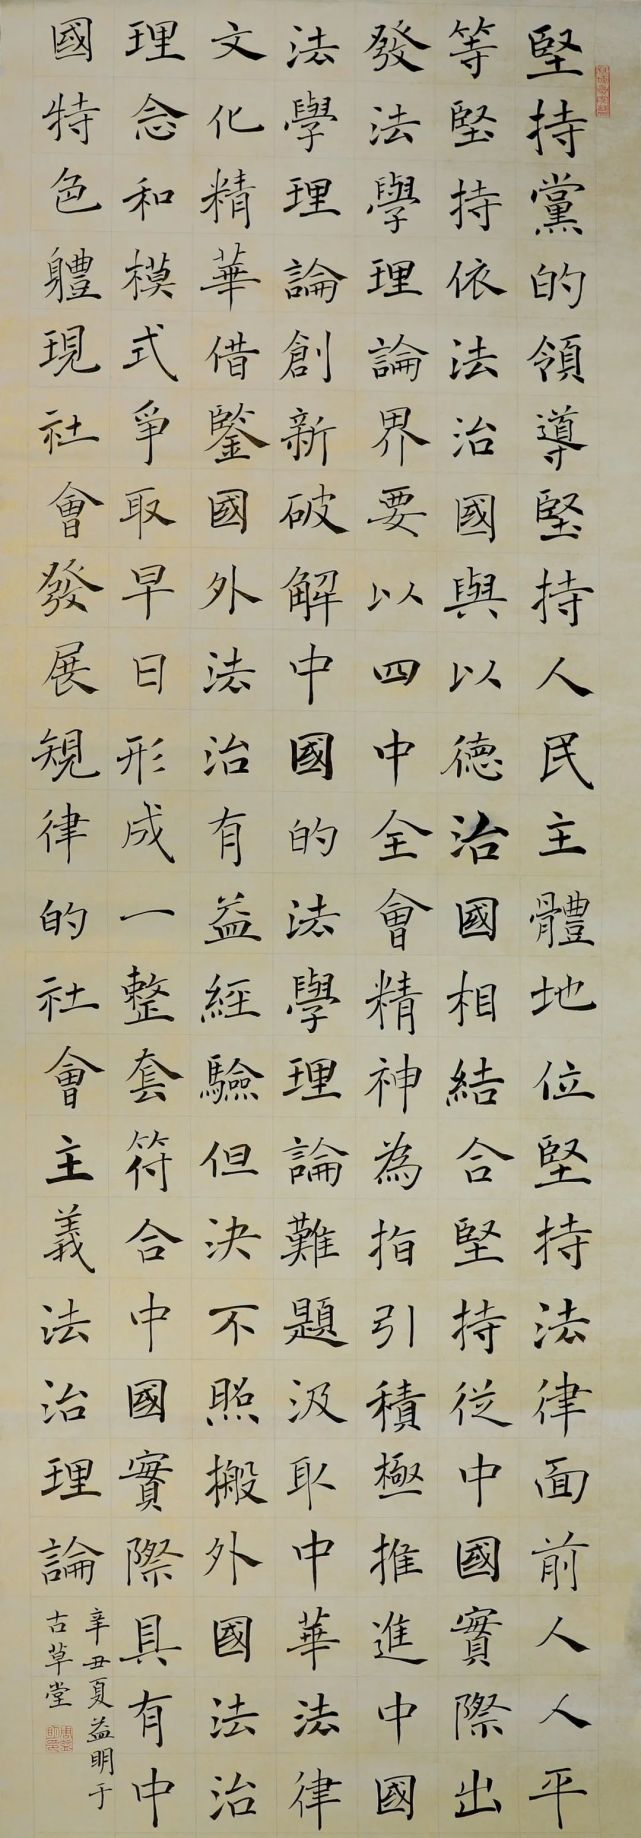 堅持黨的領導堅持人民主體地位堅持法律面前人人平
等堅持依法治國與以德治國相結合堅持從中國實際出
發法學理論界要以四中全會精神為指引積極推進中國
法學理論創新破解中國的法學理論難題汲取中華法律
文化精華借鑒國外法治有益經驗但決不照搬外國法治
理念和模式爭取早日形成一整套符合中國實際具有中
國特色軆現社會發展規律的社會主義法治理論
辛丑夏益明于
古草堂